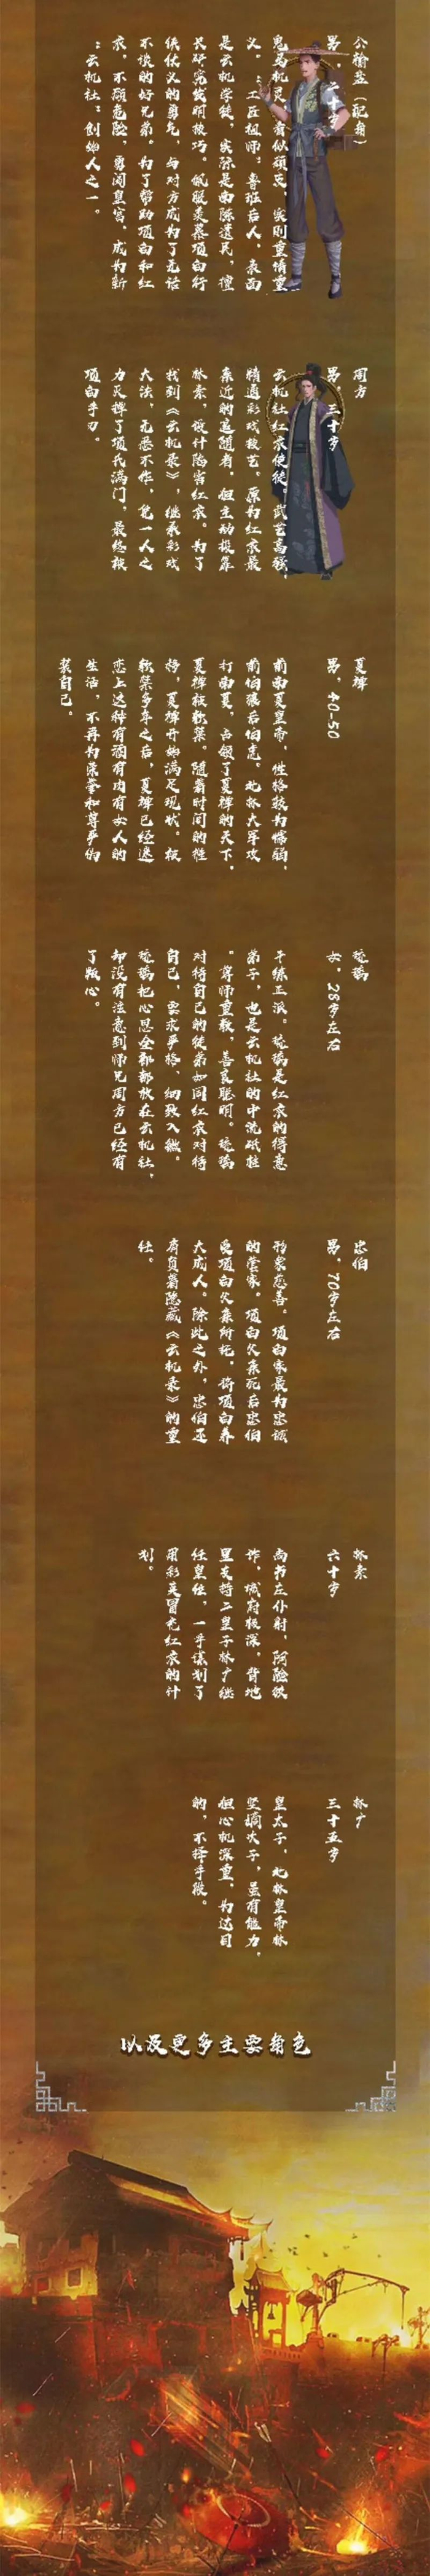 公输盐（配角）
男，二十岁
鬼马机灵，看似顽气，实则重情重
义。：工匠祖师：鲁班后人，表面
是云机学徒，实际是南陈遗民，擅
长研究发明技巧。佩服羡慕项白行
侠仗义的勇气，与对方成为了无话
不谈的好兄弟。为了帮助项白和红
衣，不顾危险，勇闯皇宫，成为新
：云机社：创始人之一。
周方
男，三十岁
云机社红衣使徒。武艺高强，
精通彩戏技艺。原为红衣最
亲近的追随者，但主动投靠
林素，设计陷害红衣。为了
找到《云机录》，继承彩戏
大法，无恶不作，凭一人之
力灭掉了项氏满门，最终被
项白手刃。
夏禅
男，40-50
前南夏皇帝，性格极为懦弱，
前怕狼后怕虎。北林大军攻
打南夏，占领了夏禅的天下，
夏禅被软禁。随着时间的推
移，夏禅开始满足现状。被
软禁多年之后，夏禅已经迷
恋上这种有酒有肉有女人的
生活，不再为荣誉和尊严伪
装自己。
琉璃
女，28岁左右
干练正派。琉璃是红衣的得意
弟子，也是云机社的中流砥柱
。尊师重教，善良聪明。琉璃
对待自己的徒弟如同红衣对待
自己，要求严格，细致入微。
琉璃把心思全部都放在云机社，
却没有注意到师兄周方已经有
了叛心。
忠伯
男，70岁左右
形象慈善。项白家最为忠诚
的管家。项白父亲死后忠伯
受项白父亲所托，将项白养
大成人。除此之外，忠伯还
肩负着隐藏《云机录》的重
任。
林素
六十岁
尚书左仆射，阴险狡
诈，城府极深，背地
里支持二皇子林广继
任皇位，一手谋划了
用彩英冒充红衣的计
划。
林广
三十五岁
皇太子，北林皇帝林
坚嫡次子，虽有能力，
但心机深重，为达目
的，不择手段。
以及更多主要角色